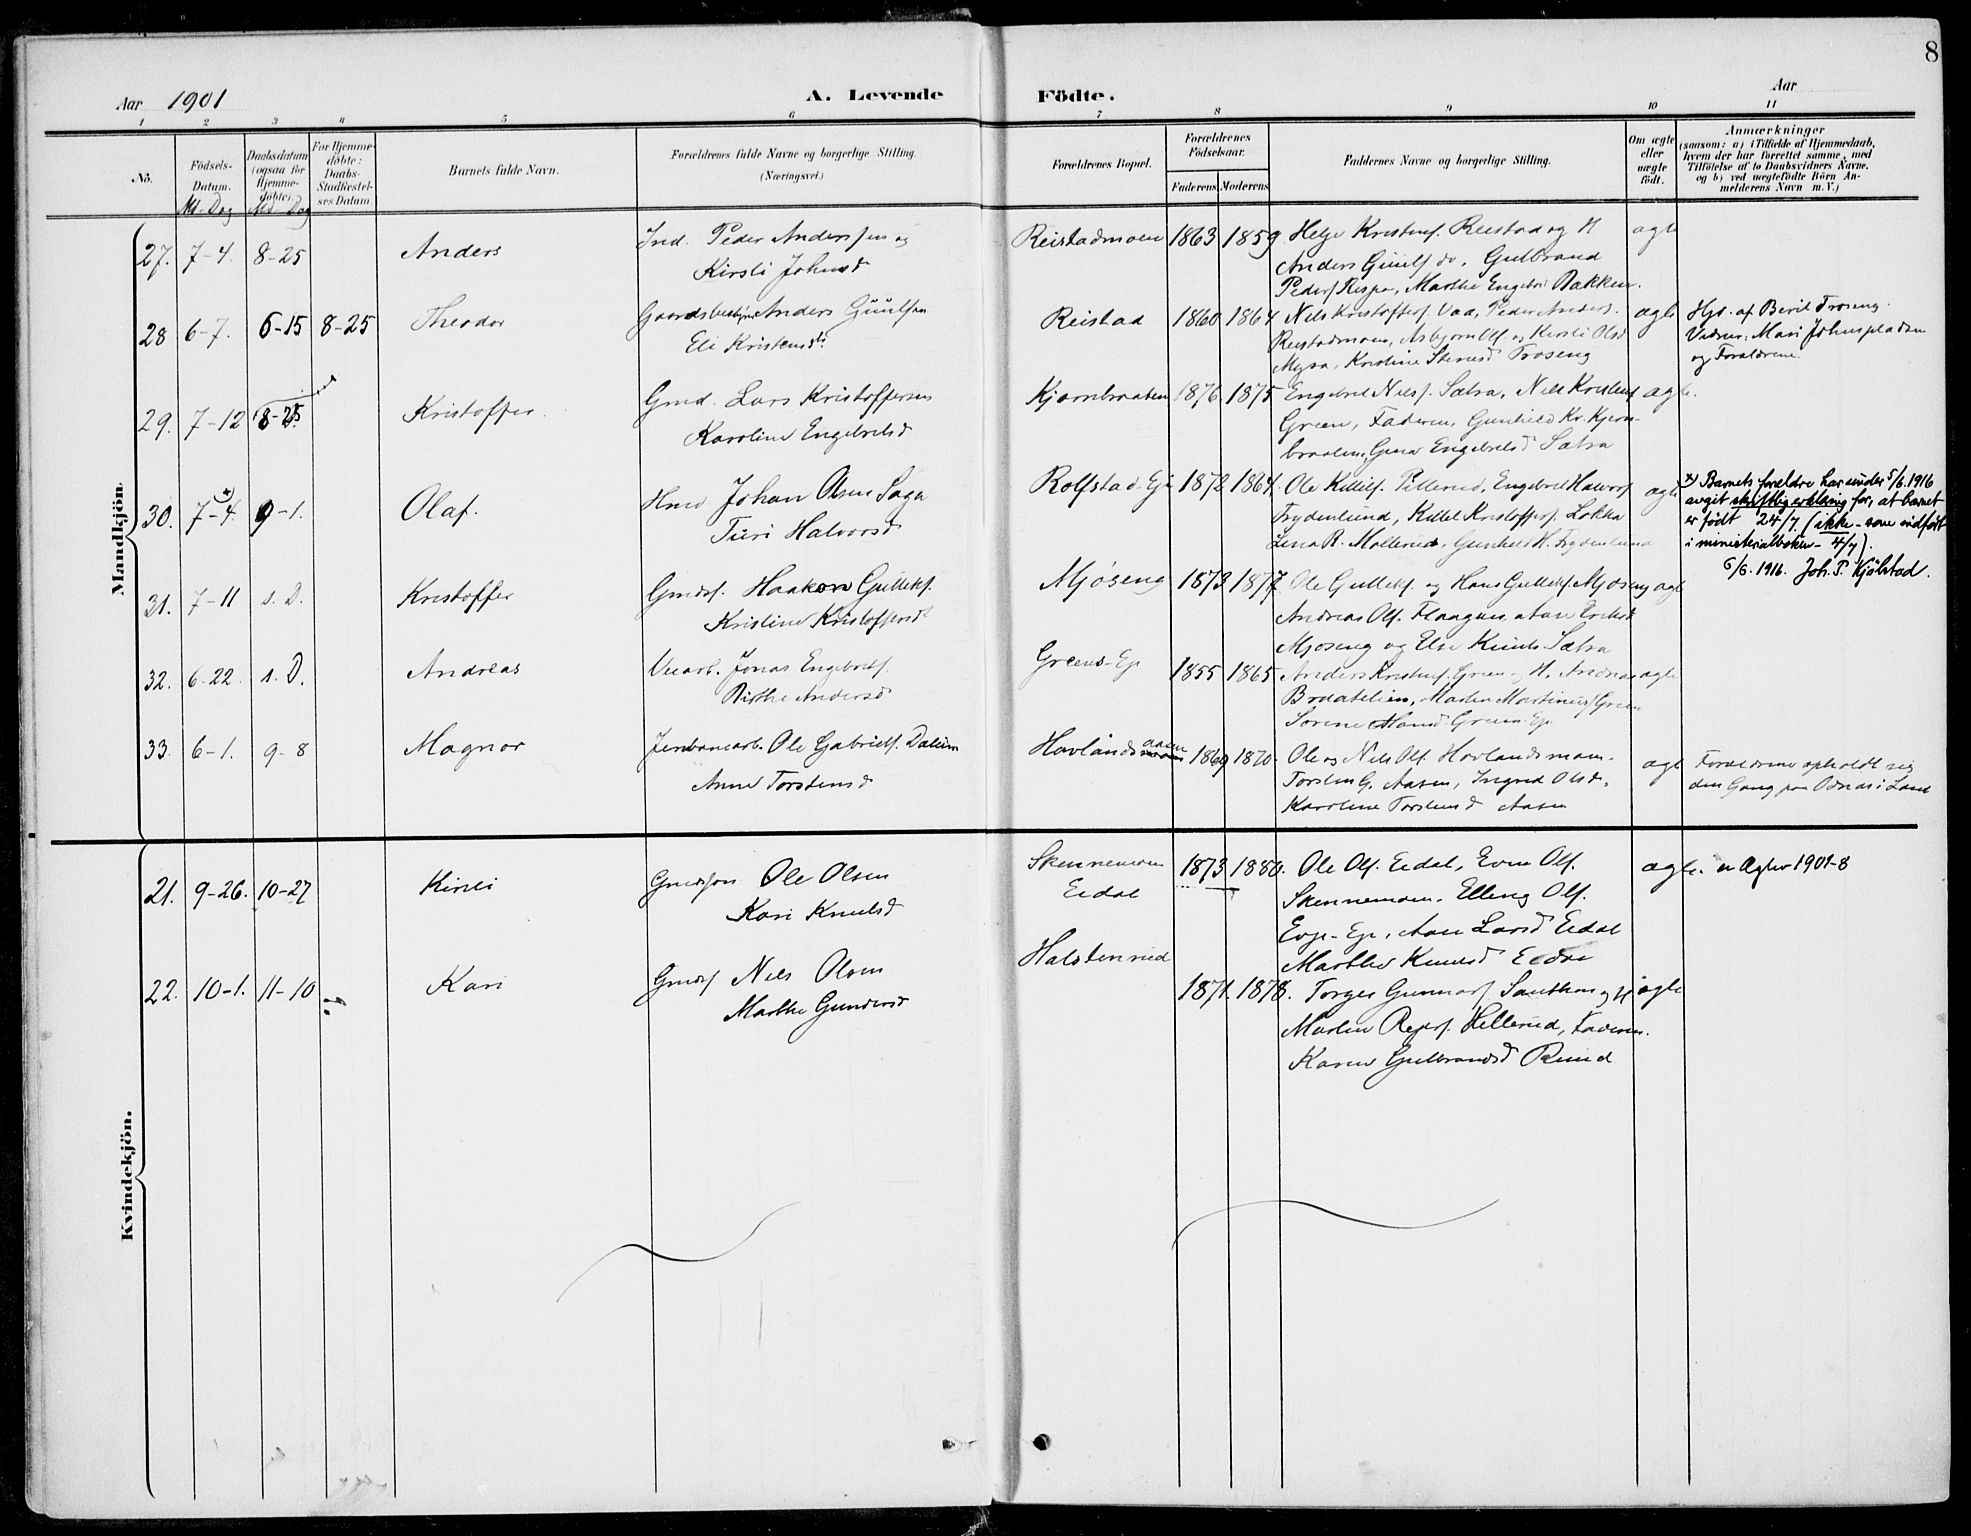 8
Aar 1901
A. Levende Födte.
Aar
1 2 3 4 5 6 7 8 9 10 11
No.
Födsels-Datum.
Md. Dag
Daabsdatum (ogsaa for Hjemmedöbte).
Md. Dag
For Hjemmedöbte: Daabs-Stadfæstelses Datum.
Barnets fulde Navn.
Forældrenes fulde Navne og borgerlige Stilling.
(Næringsvei.)
Forældrenes Bopæl.
Forældrenes Födselsaar.
Faderens Moderens
Faddernes Navne og borgerlige Stilling.
Om ægte eller uægte födt.
Anmærkninger
(saasom: a) i Tilfælde af Hjemmedaab,
hvem der har forrettet samme, med
Tilföielse af to Daabsvidners Navne,
og b) ved uægtefödte Börn An-
melderens Navn m. V.)
Mandkjön.
27. 7-4. 8-25 Anders
Ind. Peder Anderssen og
Kirsti Johnsd
Reistadmoen 1863 1859
Helge Kristens. Reistad og H
Anders Guuls do. Gulbrand
Peders. Rispa, Marthe Engebr. Bakken.
ægte
28 6-7. 6-15 8-25 Theodor
Gaardsbestyrer Anders Guulsen
Eli Kristensdt.
Reistad 1860 1864
Nels Kristoffers. Vaa, Peder Anders.
Reistadmoen, Asbjørn Ols. og Kirsti Olsd
Mysa, Kristine Stensd Troseng
ægte
Hjd. af Berit Troseng.
Vidner: Mari Johnspladsen
og Forældrene.
29. 7-12 8-25 Kristoffer
Gmd. Lars Kristoffersen
Karoline Engebretsd
Kjørnbraaten 1876 1875
Engebret Nils. Sætra, Nils Kristens
Green, Faderen, Gunhild Kr. Kjørn-
braaten, Gina Engebretsd Sætra
ægte.
30. 7-4. 9-1. Olaf.
Hmd Johan Olsen Saga
Turi Halvorsd
Rolfstad-Eje 1872 1864.
Ole Killils. Pillerud, Engebret Halvors
Frydenlund, Killil Kristoffers. Løkka
Lena R. Møllerud, Gunhild H. Frydenlund
ægte
x) Barnets forældre har under 5/6.1916
avgit skriftlig erklæring for, at barnet
er født 24/7. (ikke - som indført
i ministerialboken - 4/7).
6/6.1916. Joh. P. Kjølstad.
31. 7-11 s. D. Kristoffer
Gmds. Haakon Gulleks.
Kristine Kristoffersdt
Mjøseng 1873 1877
Ole Gulleks. og Hans Gulleks. Mjøseng
Andreas Ols. Flaagen, Ane Eriksd
Mjøseng og Else Knuts. Sætra
ægte
32. 6-22. s. D. Andreas
Veiarb. Jonas Engebrets.
Birthe Andersd
Greens-Eje 1855 1865
Anders Kristens. Green og H. Andreas
Braatelien, Martin Martinius Green
Sørine Hansd Greens-Eje
ægte
33. 6-1. 9-8 Magnor
Jernbanearb. Ole Gabriels. Dalum
Anne Torstensd
Havlandsaasen 1869 1870.
Ole og Nils Ols. Havlandsmoen.
Torsten G. Aasen, Ingrid Olsd.
Karoline Torstensd Aasen
ægte
Forældrene opholdt sig
den Gang paa Odnæs i Land
Kvindekjön.
21. 9-26. 10-27 Kirsti
Gmdssøn Ole Olsen
Kari Knutsd
Skennemoen
Eidal 1873 1880.
Ole Ols. Eidal, Even Ols.
Skennemoen. Elling Ols.
Evje-Eje, Ane Larsd Eidal
Marthe Knutsd Eidal
ægte.
22. 10-1. 11-10 Kari
Gmds Nils Olsen
Marthe Gundersd
Halstenrud
1871. 1878.
Torger Gunnars Santhon og H
Martin Repers. Hellerud, Faderen.
Karen Gulbrandsd Ruud
ægte